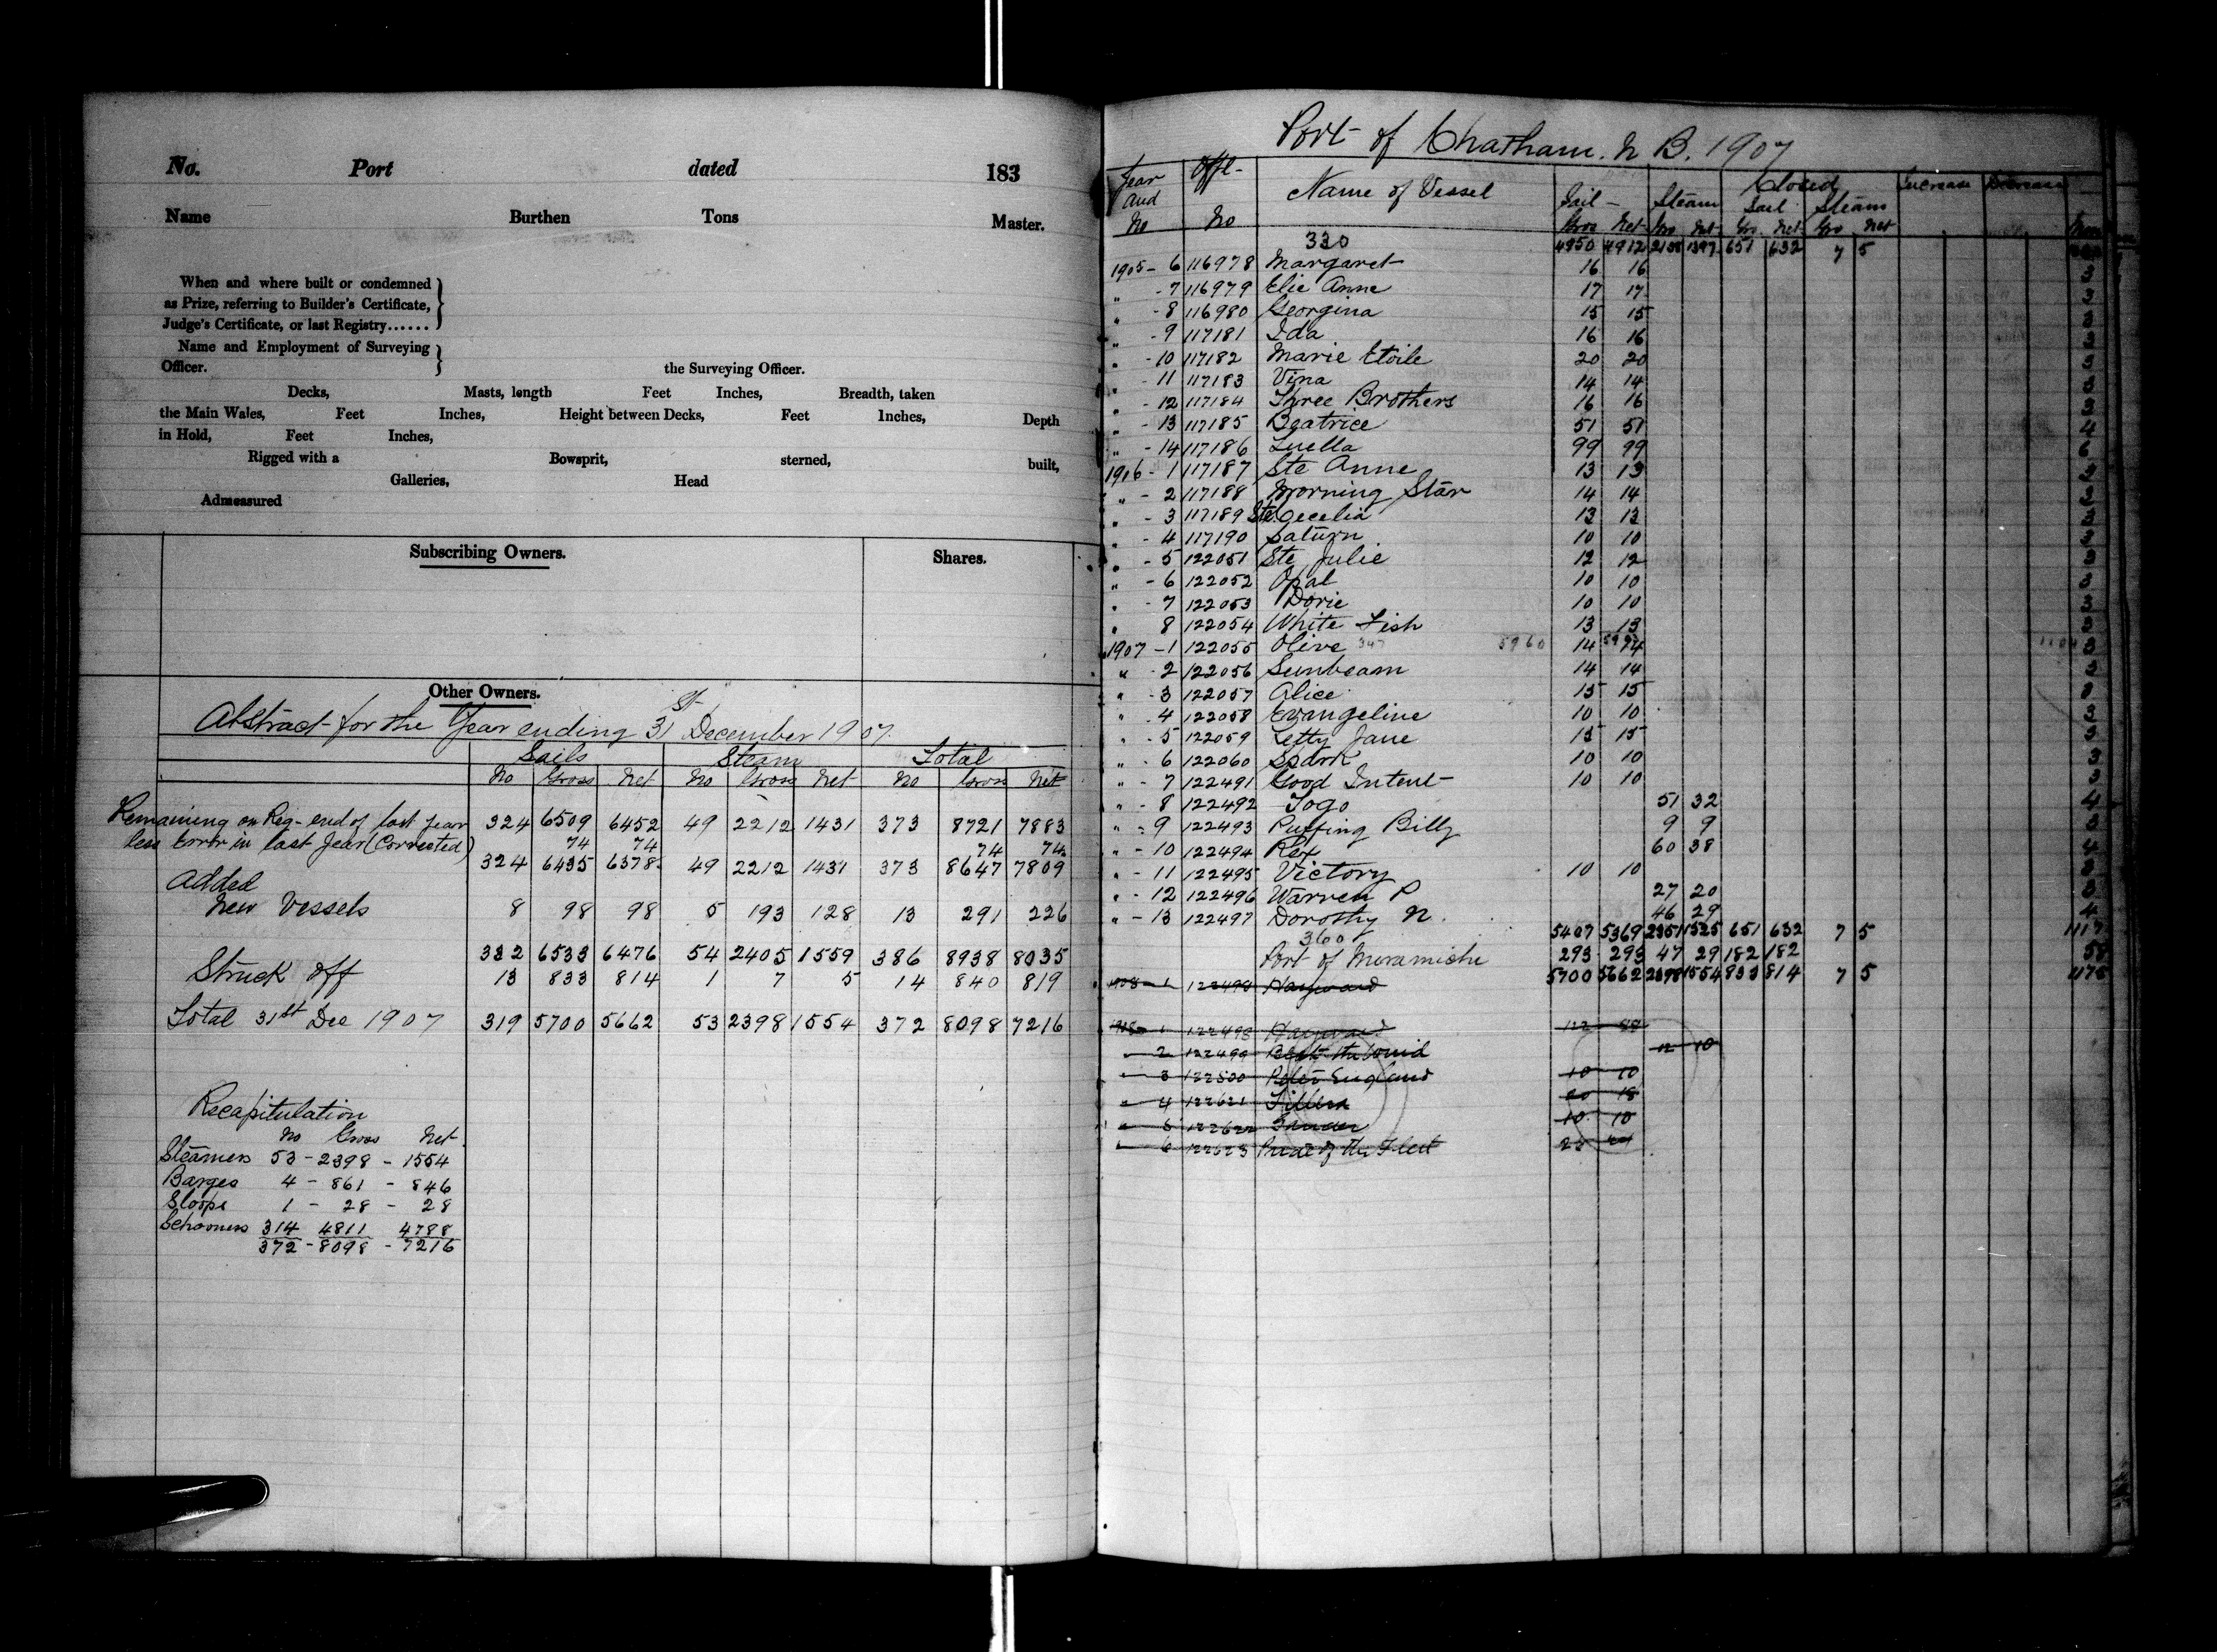 No. Port dated 183
Name Burthen Tons Master.
When and where built or condemned
as Prize, referring to Builder's Certificate,
Judge's Certificate, or last Registry......
Name and Employment of Surveying
Officer. the Surveying Officer.
Decks, Masts, length Feet Inches, Breadth, taken
the Main Wales, Feet Inches, Height between Decks, Feet Inches, Depth
in Hold, Feet Inches,
Rigged with a Bowsprit, sterned, built,
Galleries, Head
Admeasured
Subscribing Owners. Shares.
Other Owners.
Abstract for the Year ending 31st December 1907.
Sails Steam Total
No Gross Net No Gross Net No Gross Net
Remaining on Reg- end of last year 324 6509 6452 49 2212 1431 373 8721 7883
less Error in last Year (Corrected) 74 74 74 74
324 6435 6378 49 2212 1431 373 8647 7809
Added
New Vessels 8 98 98 5 193 128 13 291 226
332 6533 6476 54 2405 1559 386 8938 8035
Struck off 13 833 814 1 7 5 14 840 819
Total 31st Dec 1907 319 5700 5662 53 2398 1554 372 8098 7216
Recapitulation
No Gross Net
Steamers 53 - 2398 - 1554
Barges 4 - 861 - 846
Sloops 1 - 28 - 28
Schooners 314 4811 4788
372 - 8098 - 7216
Port of Chatham. N B. 1907
Year and No Offl- No Name of Vessel Sail - Steam Closed Sail Steam Increase Decrease
Gross Net Gro Net Gro. Net Gro Net
330 4950 4912 651 632 7 5
1905 - 6 116978 Margaret 16 16 3
" - 7 116979 Elie Anne 17 17 3
" - 8 116980 Georgina 15 15 3
" - 9 117181 Ida 16 16 3
" - 10 117182 Marie Etoile 20 20 3
" - 11 117183 Vina 14 14 3
" - 12 117184 Three Brothers 16 16 3
" - 13 117185 Beatrice 51 51 4
" - 14 117186 Luella 99 99
1906 - 1 117187 Ste Anne 13 13
" - 2 117188 Morning Star 14 14 3
" - 3 117189 Ste. Cecelia 13 13 3
" - 4 117190 Saturn 10 10 3
" - 5 122051 Ste Julie 12 12 3
" - 6 122052 Opal 10 10 3
" - 7 122053 Dorie 10 10 3
" 8 122054 White Fish 13 13 3
1907 - 1 122055 Olive 347 5960 14 14 3
" - 2 122056 Sunbeam 14 14 3
" - 3 122057 Alice 15 15 3
" - 4 122058 Evangeline 10 10 3
" - 5 122059 Letty Jane 15 15 3
" - 6 122060 Spark 10 10 3
" - 7 122491 Good Intent 10 10 3
" - 8 122492 Togo 51 32 4
" - 9 122493 Puffing Billy 9 9 3
" - 10 122494 Rex 60 38 4
" - 11 122495 Victory 10 10 3
" - 12 122496 Warren P 27 20 3
" - 13 122497 Dorothy N. 46 29 4
360 5407 5369 2351 1525 651 632 7 5 1117
Port of Miramichi 293 293 47 29 182 182 58
5700 5662 2398 1554 833 814 7 5 1175
1908 - 1 122498 Hayward
1 122498 Hayward 122 88
" 2 122499 Beat the Wind 12 10
" 3 122500 England 10 10
" 4 122621 20 18
" 5 122622 10 10
" 6 122623 Pride of the Fleet 25